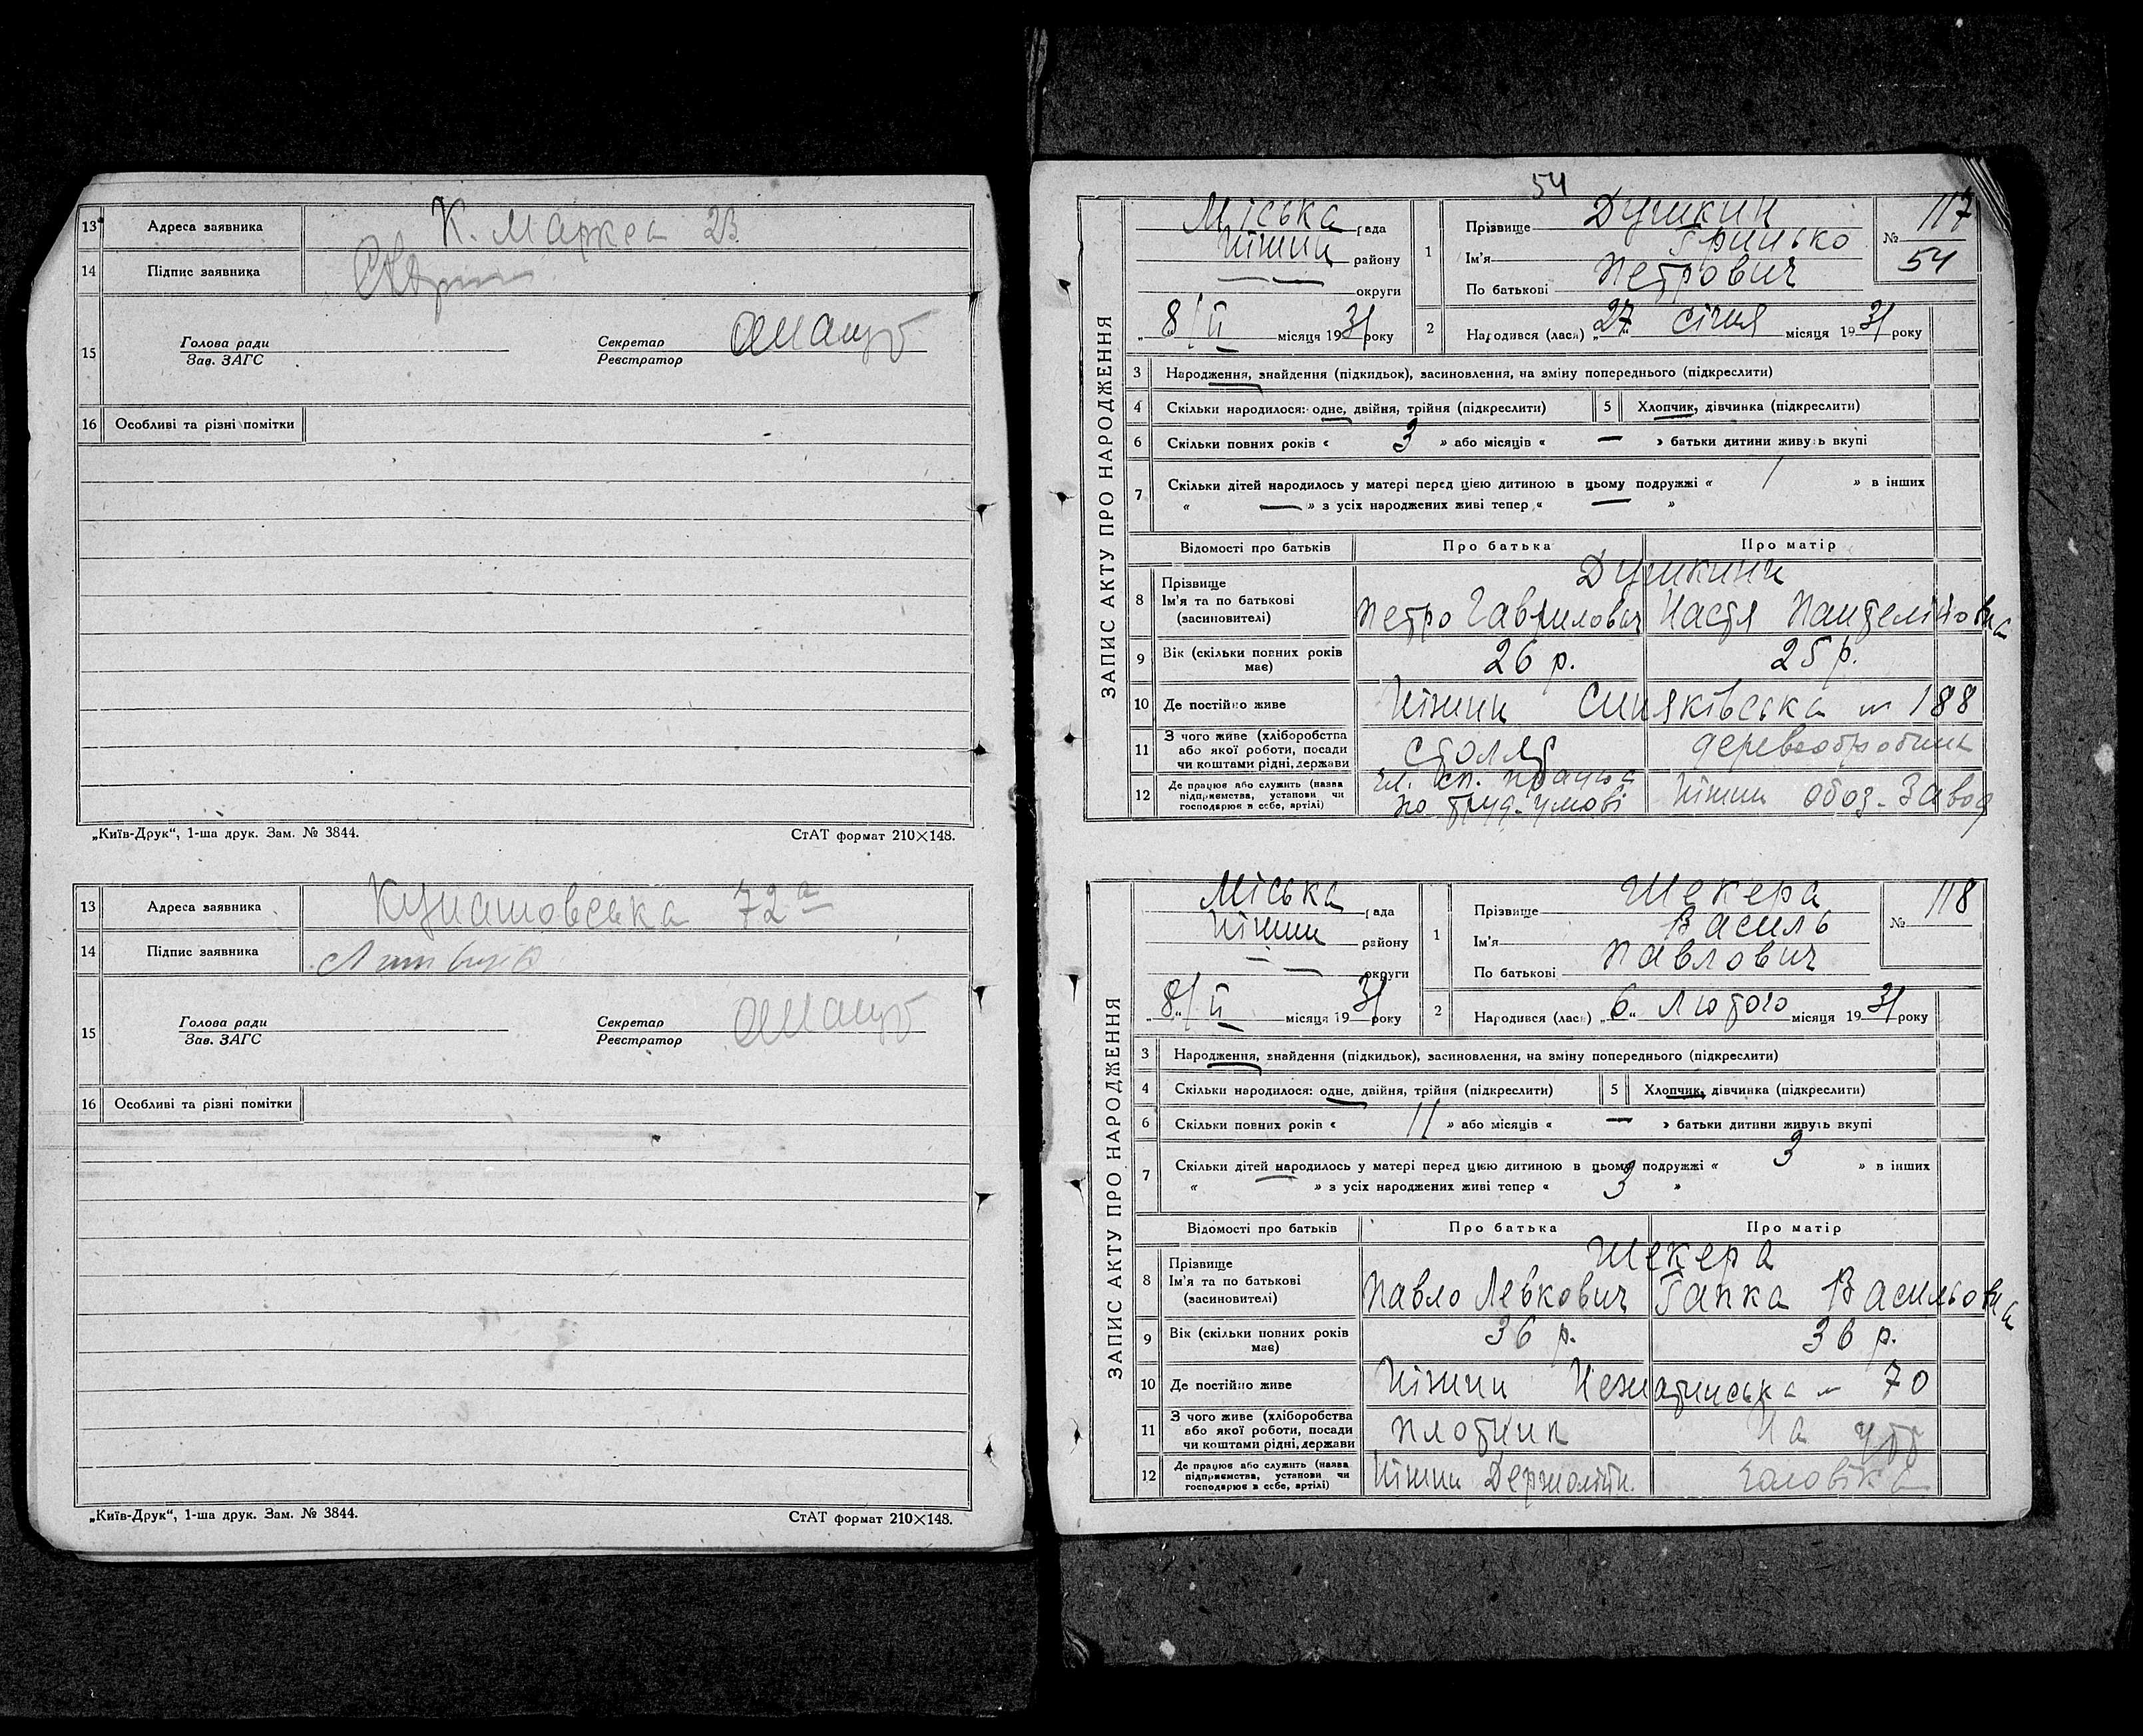 13 Адреса заявника К. Маркса 23
14 Підпис заявника
15 Голова ради
Зав. ЗАГС
Секретар
Реєстратор
16 Особливі та різні помітки
„Київ-Друк“, 1-ша друк. Зам. № 3844. СтАТ формат 210×148.
13 Адреса заявника Кунашовська 72а
14 Підпис заявника
15 Голова ради
Зав. ЗАГС
Секретар
Реєстратор
16 Особливі та різні помітки
„Київ-Друк“, 1-ша друк. Зам. № 3844. СтАТ формат 210×148.
54
ЗАПИС АКТУ ПРО НАРОДЖЕННЯ
Міська рада
Ніжин району
— — округи
„8/II місяця 1931 року
1 Прізвище Душкин
Ім'я Грицько
По батькові Петрович
№ 117
54
2 Народився (лась) „27“ січня місяця 1931 року
3 Народження, знайдення (підкидьок), засиновлення, на зміну попереднього (підкреслити)
4 Скільки народилося: одне, двійня, трійня (підкреслити) 5 Хлопчик, дівчинка (підкреслити)
6 Скільки повних років « 3 » або місяців « — » батьки дитини живуть вкупі
7 Скільки дітей народилось у матері перед цією дитиною в цьому подружжі « 1 » в інших
« — » з усіх народжених живі тепер « — »
Відомості про батьків Про батька Про матір
8 Прізвище
Ім'я та по батькові
(засиновителі)
Душкини
Петро Гаврилович Настя Пантелійовна
9 Вік (скільки повних років має) 26 р. 25 р.
10 Де постійно живе Ніжин Синяківська № 188
11 З чого живе (хліборобства
або якої роботи, посади
чи коштами рідні, держави
столяр
12 Де працює або служить (назва
підприємства, установи чи
господарює в себе, артілі)
по труд. умові Ніжин Обоз. Завод
ЗАПИС АКТУ ПРО НАРОДЖЕННЯ
Міська рада
Ніжин району
— — округи
„8“/II місяця 1931 року
1 Прізвище Шекера
Ім'я Василь
По батькові Павлович
№ 118
2 Народився (лась) „6“ Лютого місяця 1931 року
3 Народження, знайдення (підкидьок), засиновлення, на зміну попереднього (підкреслити)
4 Скільки народилося: одне, двійня, трійня (підкреслити) 5 Хлопчик, дівчинка (підкреслити)
6 Скільки повних років « 11 » або місяців « — » батьки дитини живуть вкупі
7 Скільки дітей народилось у матері перед цією дитиною в цьому подружжі « 3 » в інших
« » з усіх народжених живі тепер « 3 »
Відомості про батьків Про батька Про матір
8 Прізвище
Ім'я та по батькові
(засиновителі)
Шекера
Павло Левкович Гапка Васильовна
9 Вік (скільки повних років має) 36 р. 36 р.
10 Де постійно живе Ніжин № 70
11 З чого живе (хліборобства
або якої роботи, посади
чи коштами рідні, держави
плотник На утр
12 Де працює або служить (назва
підприємства, установи чи
господарює в себе, артілі)
Ніжин чоловіка